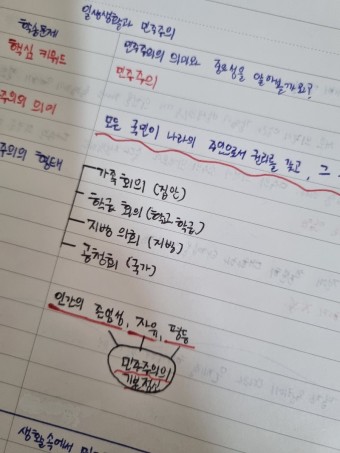 일상생활과 민주주의
학습문제
민주주의의 의미와 중요성을 알아볼까요?
핵심 키워드
민주주의
주의의 의미
모든 국민이 나라의 주인으로서 권리를 갖고, 그
주의의 형태
가족회의 (집안)
학급 회의 (학교 학급)
지방 의회 (지방)
공청회 (국가)
인간의 존엄성, 자유, 평등
민주주의의
기본정신
생활속에서 민